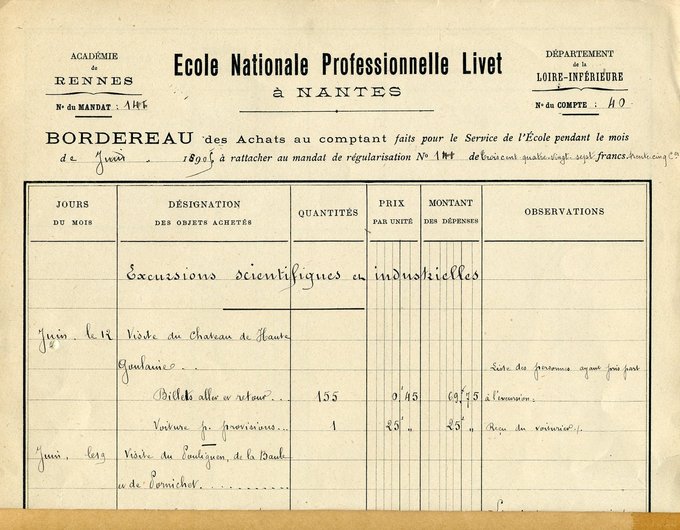 ACADÉMIE
de
RENNES
Ecole Nationale Professionnelle Livet
à NANTES
DÉPARTEMENT
de la
LOIRE-INFÉRIEURE
No du MANDAT :
No du COMPTE : 40
BORDEREAU des Achats au comptant faits pour le Service de l'École pendant le mois
de Juin 1905 à rattacher au mandat de régularisation No de trois cent quatre-vingt-sept francs trente cinq Ces
JOURS DU MOIS
DÉSIGNATION DES OBJETS ACHETÉS
QUANTITÉS
PRIX PAR UNITÉ
MONTANT DES DÉPENSES
OBSERVATIONS
Excursions scientifiques et industrielles
Juin, le 12 Visite du Chateau de Haute
Goulaine Liste des personnes ayant pris part
Billets aller et retour 155 0f 45 69f 75 à l'excursion.
Voiture p. provisions 1 25f „ 25f „ Reçu du voiturier
Juin, le 19 Visite du Pouliguen, de la Baule
et de Pornichet